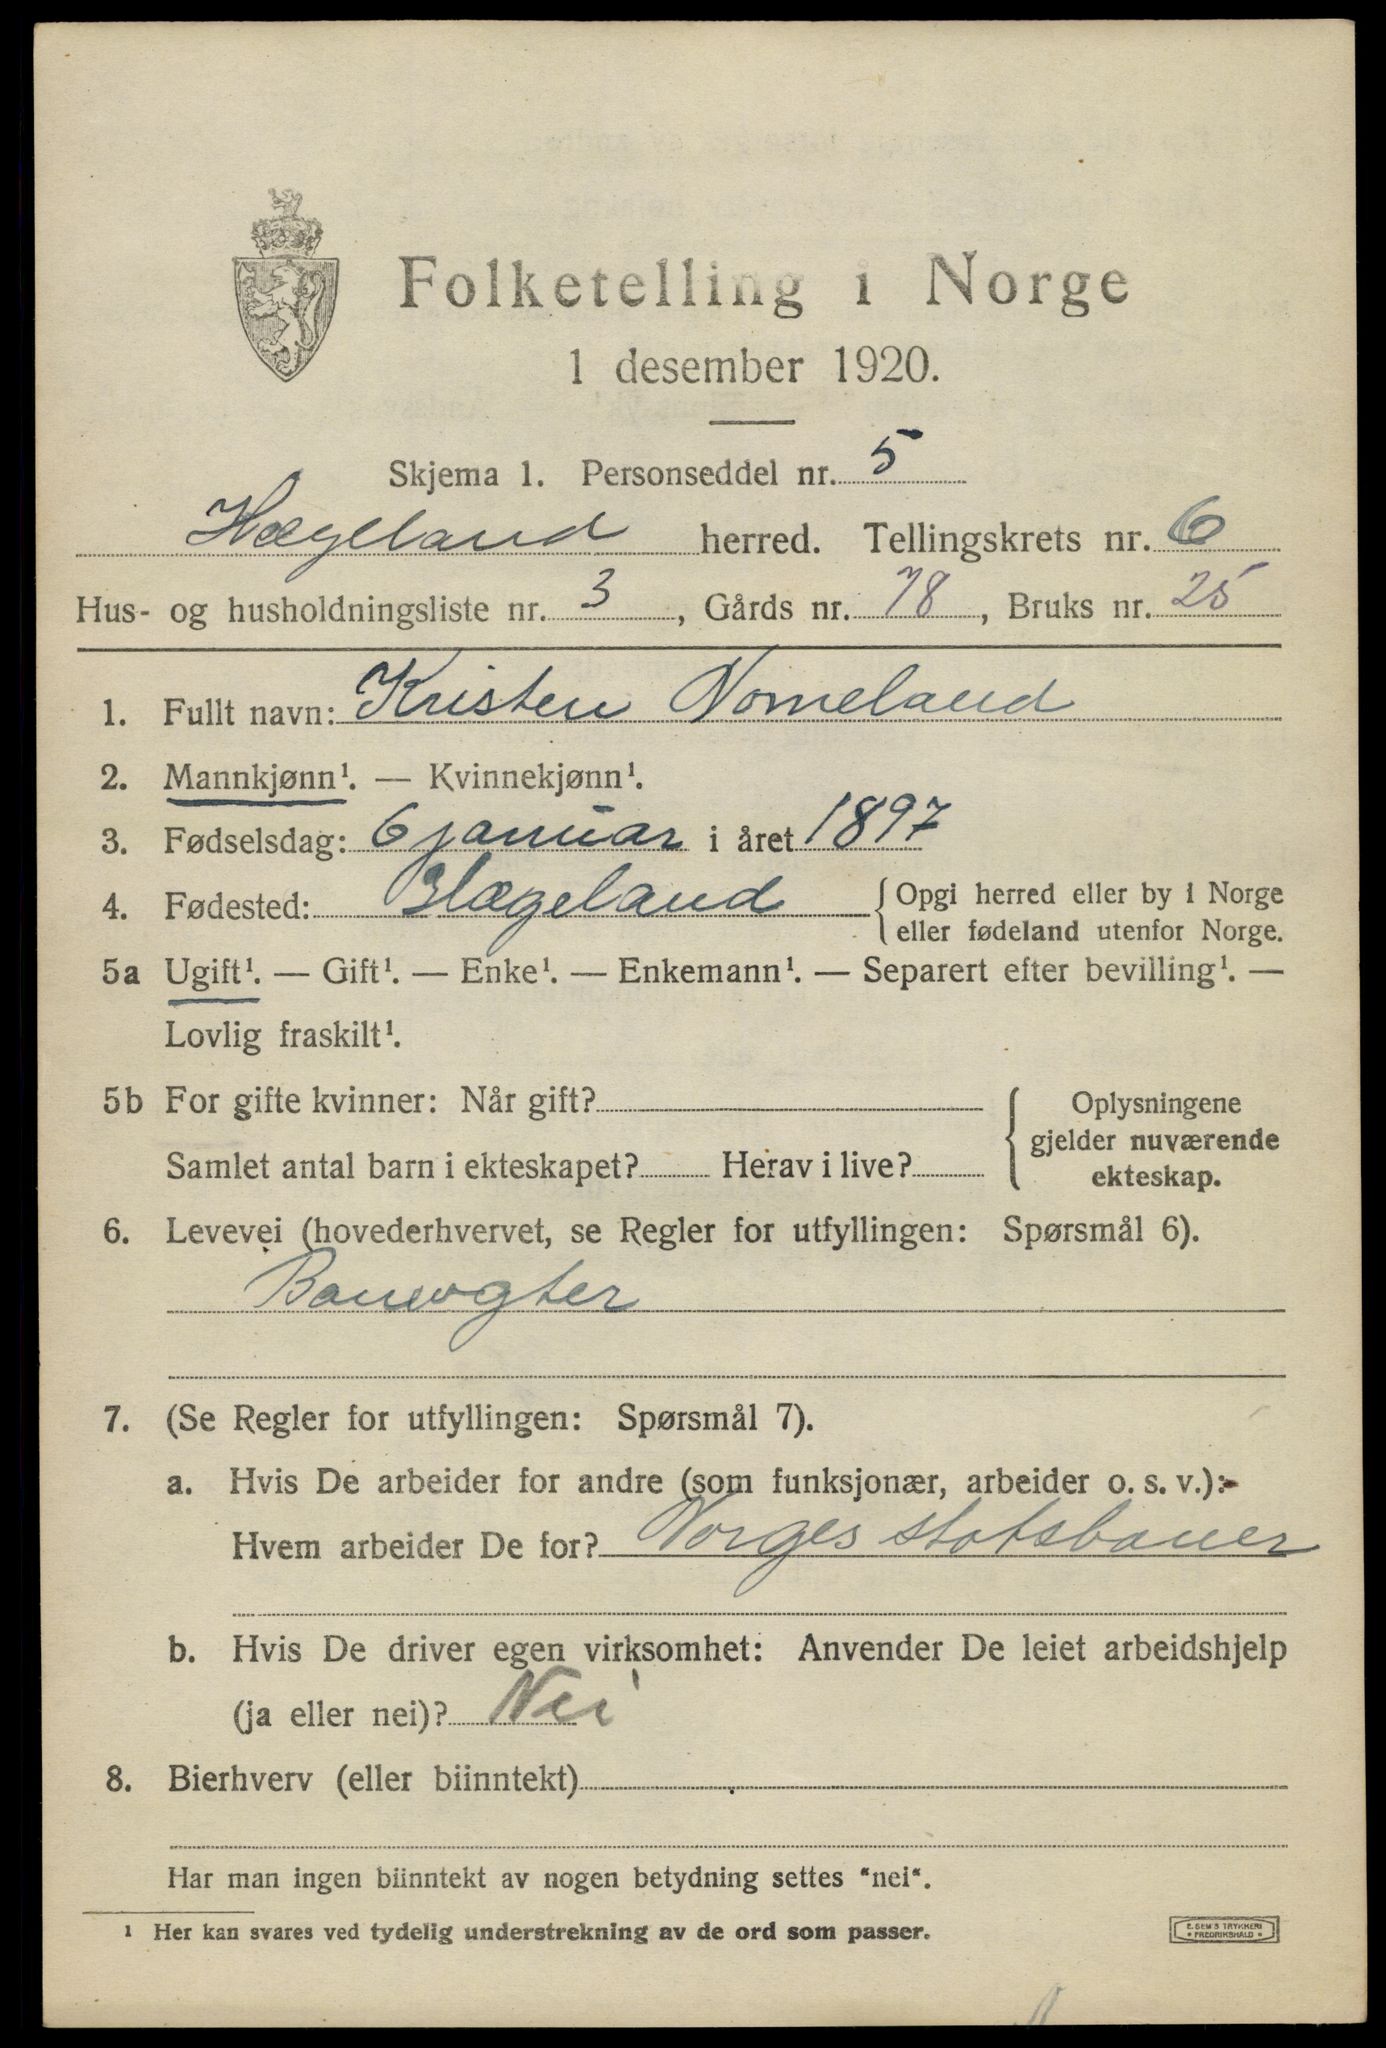 Folketelling i Norge
1 desember 1920.
Skjema 1. Personseddel nr. 5
Hægeland herred. Tellingskrets nr. 6
Hus- og husholdningsliste nr. 3, Gårds nr. 78, Bruks nr. 25
1. Fullt navn: Kristen Nomeland
2. Mannkjønn¹. — Kvinnekjønn¹.
3. Fødselsdag: 6 januar i året 1897
4. Fødested: Hægeland { Opgi herred eller by i Norge
eller fødeland utenfor Norge.
5a Ugift¹. — Gift¹. — Enke¹. — Enkemann¹. — Separert efter bevilling¹. —
Lovlig fraskilt¹.
5b For gifte kvinner: Når gift? { Oplysningene
gjelder nuværende
Samlet antal barn i ekteskapet? Herav i live? ekteskap.
6. Levevei (hovederhvervet, se Regler for utfyllingen: Spørsmål 6).
Banevogter
7. (Se Regler for utfyllingen: Spørsmål 7).
a. Hvis De arbeider for andre (som funksjonær, arbeider o. s. v.):
Hvem arbeider De for? Norges statsbaner
b. Hvis De driver egen virksomhet: Anvender De leiet arbeidshjelp
(ja eller nei)? Nei
8. Bierhverv (eller biinntekt)
Har man ingen biinntekt av nogen betydning settes "nei".
¹ Her kan svares ved tydelig understrekning av de ord som passer.
E. SEM'S TRYKKERI
• FREDRIKSHALD •